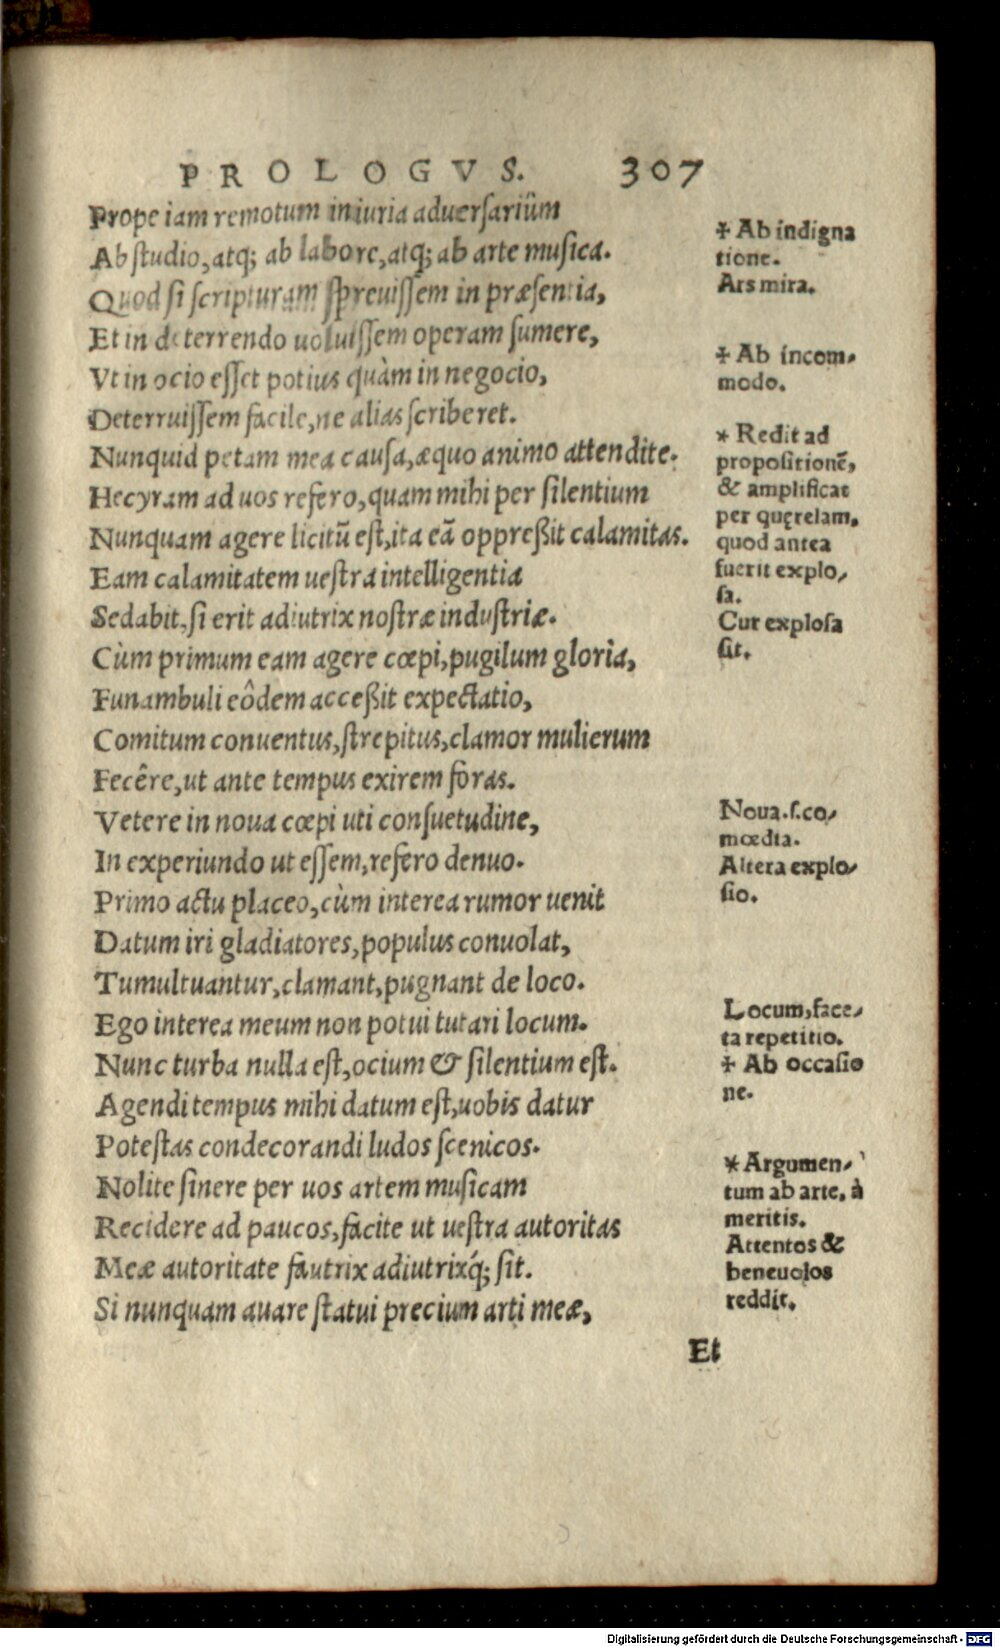 PROLOGVS. 307
Prope iam remotum iniuria aduersariûm
Ab studio, atq; ab labore, atq; ab arte musica.
Quod si scripturam spreuissem in præsentia,
Et in deterrendo uoluissem operam sumere,
Vt in ocio esset potius quàm in negocio,
Deterruissem facile, ne alias scriberet.
Nunquid petam mea causa, æquo animo attendite.
Hecyram ad uos refero, quam mihi per silentium
Nunquam agere licitũ est, ita eã oppreßit calamitas.
Eam calamitatem uestra intelligentia
Sedabit, si erit adiutrix nostræ industriæ.
Cùm primum eam agere cœpi, pugilum gloria,
Funambuli eôdem acceßit expectatio,
Comitum conuentus, strepitus, clamor mulierum
Fecêre, ut ante tempus exirem foras.
Vetere in noua cœpi uti consuetudine,
In experiundo ut essem, refero denuo.
Primo actu placeo, cùm interea rumor uenit
Datum iri gladiatores, populus conuolat,
Tumultuantur, clamant, pugnant de loco.
Ego interea meum non potui tutari locum.
Nunc turba nulla est, ocium & silentium est.
Agendi tempus mihi datum est, uobis datur
Potestas condecorandi ludos scenicos.
Nolite sinere per uos artem musicam
Recidere ad paucos, facite ut uestra autoritas
Meæ autoritate fautrix adiutrixq́; sit.
Si nunquam auare statui precium arti meæ,
Et
✢ Ab indigna
tione.
Ars mira.
✢ Ab incom-
modo.
* Redit ad
propositionẽ,
& amplificat
per querelam,
quod antea
fuerit explo-
sa.
Cur explosa
sit.
Noua.s.co-
mœdia.
Altera explo-
sio.
Locum, face-
ta repetitio.
✢ Ab occasio
ne.
* Argumen-
tum ab arte, à
meritis.
Attentos &
beneuolos
reddit.
Digitalisierung gefördert durch die Deutsche Forschungsgemeinschaft - DFG